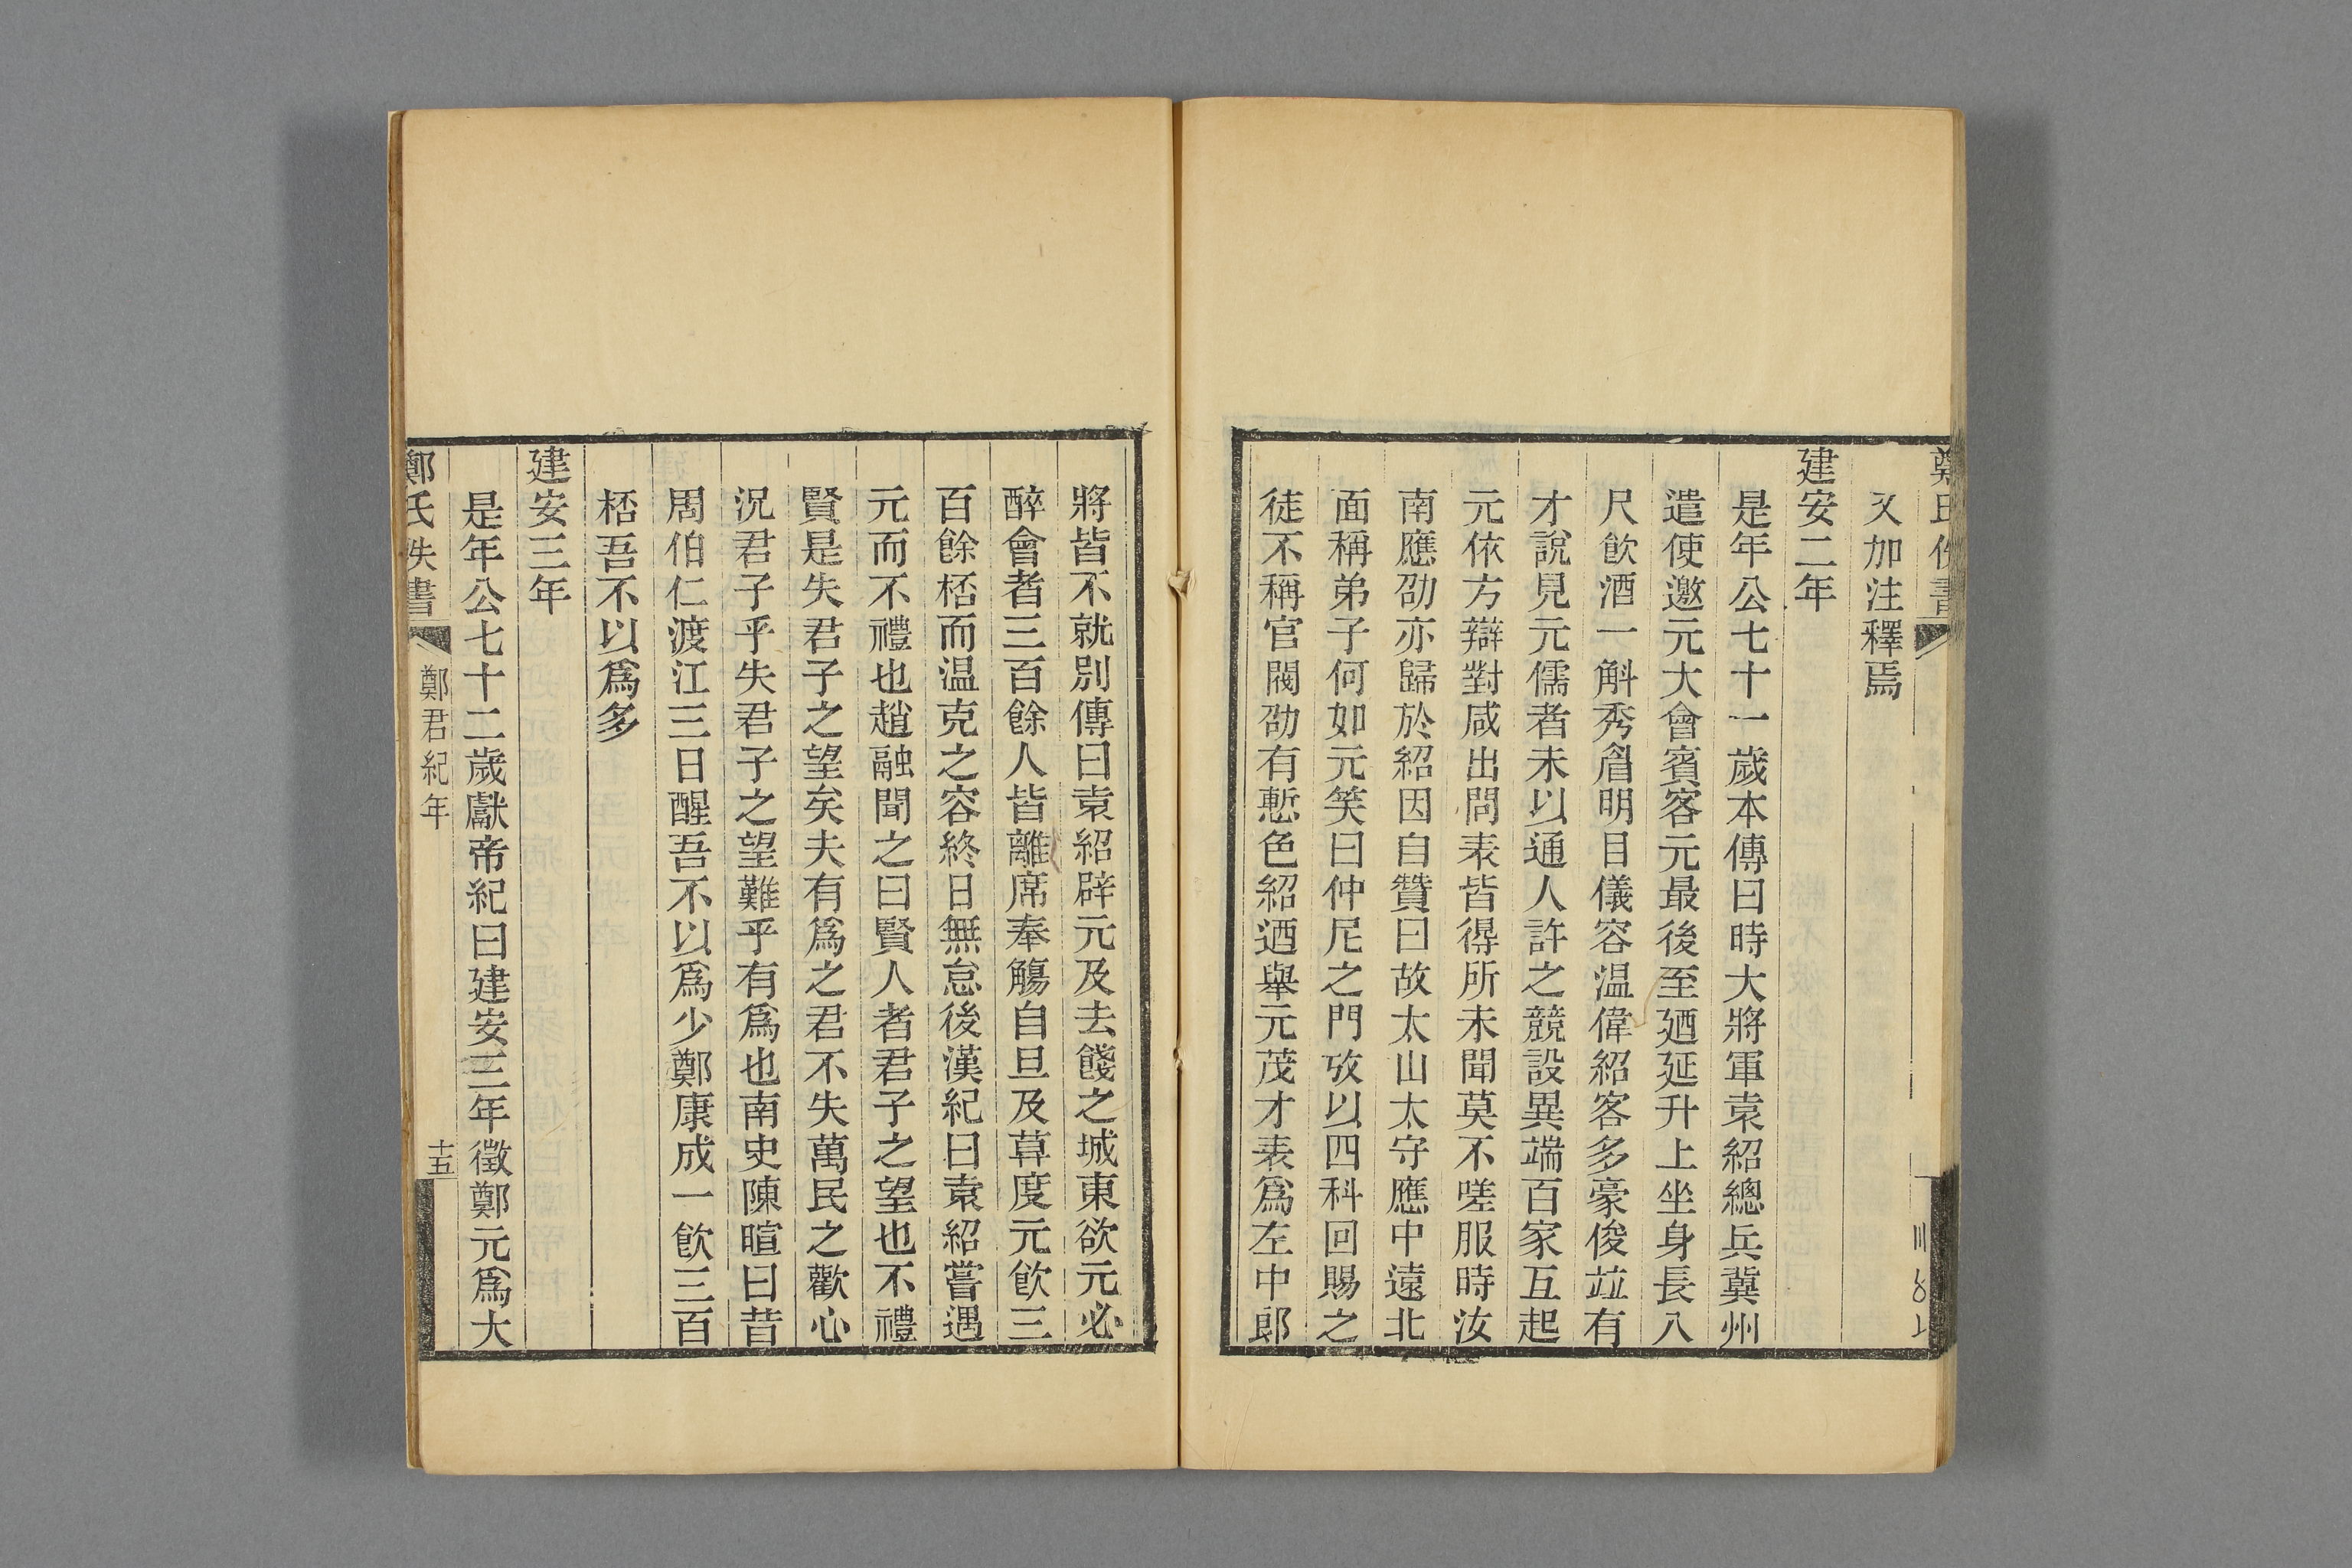 又加注釋焉
建安二年
是年公七十一歲本傳曰時大將軍袁紹總兵冀州
遣使邀元大會賓客元最後至廼延升上坐身長八
尺飲酒一斛秀眉明目儀容温偉紹客多豪俊竝有
才說見元儒者未以通人許之競設異端百家互起
元依方辯對咸出問表皆得所未聞莫不嗟服時汝
南應劭亦歸於紹因自贊曰故太山太守應中遠北
面稱弟子何如元笑曰仲尼之門攷以四科回賜之
徒不稱官閥劭有慙色紹迺舉元茂才表爲左中郎
將皆不就別傳曰袁紹辟元及去餞之城東欲元必
醉會者三百餘人皆離席奉觴自旦及莫度元飲三
百餘桮而温克之容終日無怠後漢紀曰袁紹嘗遇
元而不禮也趙融聞之曰賢人者君子之望也不禮
賢是失君子之望矣夫有爲之君不失萬民之歡心
況君子乎失君子之望難乎有爲也南史陳暄曰昔
周伯仁渡江三日醒吾不以爲少鄭康成一飲三百
桮吾不以爲多
建安三年
是年公七十二歲獻帝紀曰建安三年徵鄭元爲大
鄭氏佚書
鄭君紀年
十五